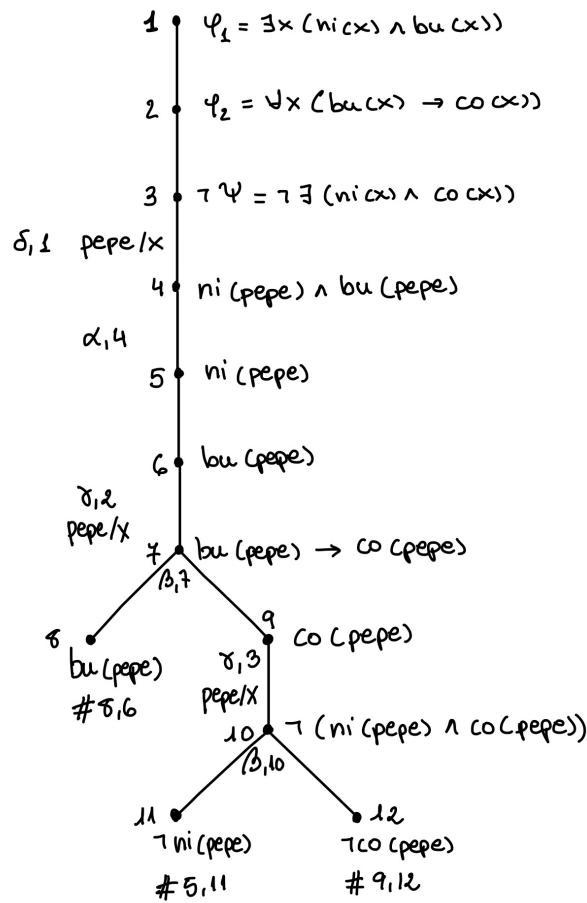 1 φ₁ = ∃x (ni(x) ∧ bu(x))
2 φ₂ = ∀x (bu(x) → co(x))
3 ¬Ψ = ¬∃ (ni(x) ∧ co(x))
δ,1 pepe/x
4 ni(pepe) ∧ bu(pepe)
α,4
5 ni(pepe)
6 bu(pepe)
γ,2
pepe/x
7 bu(pepe) → co(pepe)
β,7
9
8 co(pepe)
bu(pepe)
γ,3
#8,6
pepe/x
10 ¬(ni(pepe) ∧ co(pepe))
β,10
11 12
¬ni(pepe) ¬co(pepe)
#5,11 #9,12